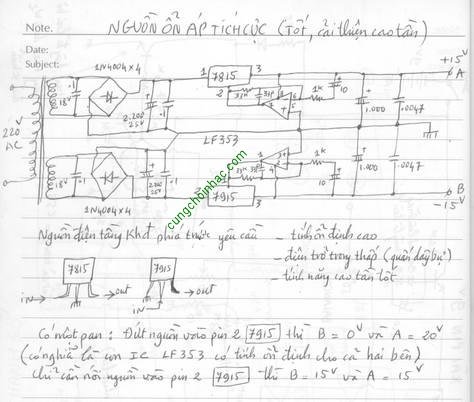 Note. NGUỒN ỔN ÁP TÍCH CỰC (TỐT, cải thiện cao tần)
Date:
Subject:
+15V
1N4004 x 4
1 7815 3
A
2 33K 33P 8 1K
18V .1 2.200 25V .1 10 1.000 .0047
220V AC
LF353
18V .1 2200 25V .1 33K 33P 4 1K 10 1.000 .0047
2 7915 3
B
-15V
1N4004 x 4
cungchoinhac.com
Nguồn điện tăng Khđ phía trước yêu cầu - tính ổn định cao
- điện trở trong thấp (quấn dây bự)
- tính năng cao tần tốt
7815 7915
IN → out IN → out
Có một pan: Đứt nguồn vào pin 2 7915 thì B = 0V và A = 20V
(có nghĩa là con IC LF353 có tính ổn định cho cả hai bên)
Chỉ cần nối nguồn vào pin 2 7915 thì B = 15V và A = 15V